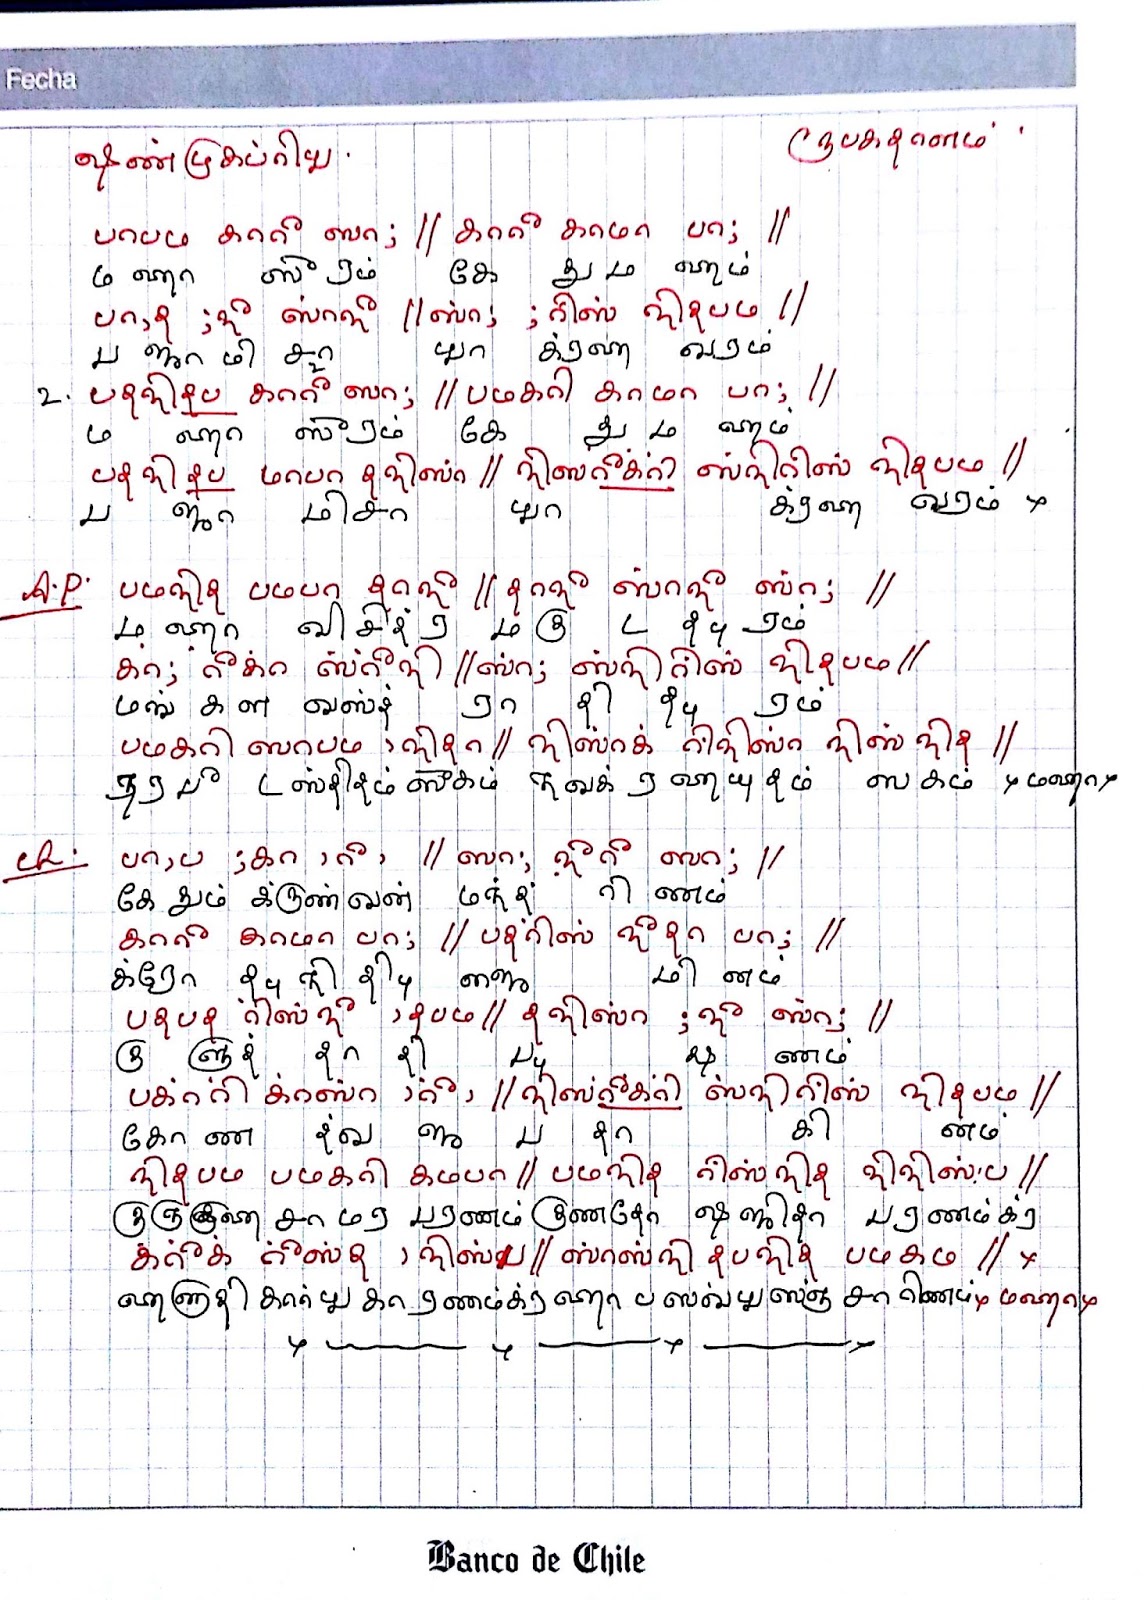 Fecha
ஷண்முகப்ரிய. ரூபகதாளம்
பாபம காரீ ஸா; // காரீ காமா பா; //
ம ஹா ஸீரம் கே து ம ஹம்
பா,த ;நீ ஸ்நீ // ஸ்; ;ரிஸ் நிதபம //
ப ஜாமி ச்சா யா க்ரஹ வரம்
2. பதநிதப காரீ ஸா; // பமகரி காமா பா; //
ம ஹா ஸீரம் கே து ம ஹம்
பதநிதப மாபா தநிஸா // நிஸரீக்ரி ஸ்நிரிஸ் நிதபம //
ப ஜா மிசா யா க்ரஹ வரம் x
A.P. பமநித பமபா தாநீ // தாநீ ஸ்நீ ஸ்; //
ம ஹா விசித்ர ம கு ட தபு ரம்
கா; ரீக்கா ஸ்ரீநி // ஸ்; ஸ்நிரிஸ் நிதபம //
மங் கள வஸ்த் ரா தி தபு ரம்
பமகரி ஸாபம ,நிதா // நிஸ்க் ரிநிஸ் நிஸ் நித //
நரபீ டஸ்திதம் ஸீகம் நவக் ரஹயுதம் ஸகம் x மஹா x
ch: பா,ப ;கா ,ரீ, // ஸா; நீரீ ஸா; //
கேதும் க்ருண்வன் மந்த் ரி ணம்
காரீ காமா பா; // பத்ரிஸ் நீதா பா; //
க்ரோ தபு நி திபு ஜை மி னம்
பதபத ரிஸ்நீ ,தபம // தநிஸா ;நீ ஸ்; //
கு ளுத் தா தி பு ஷ ணம்
பக்ரி க்கஸ் ,ரீ, // நிஸ்ரீக்ரி ஸ்நிரிஸ் நிதபம //
கோ ண த்வ ஜ ப தா கி னம்
நிதபம பமகரி கமபா // பமநித ரிஸ்நித நிநிஸ்:ப //
சாமர பரணம் குணதோ ஷஜிதா பரணம்க்ர
க்ரீக் ரீஸ்த ,நிஸ்ப // ஸ்ஸ்நி தபநித பமகம // x
ஹளுதி கார்யகாரணம்க்ரஹா பஸவ்யஸஞ் சாரிணம் x மஹா x
Banco de Chile